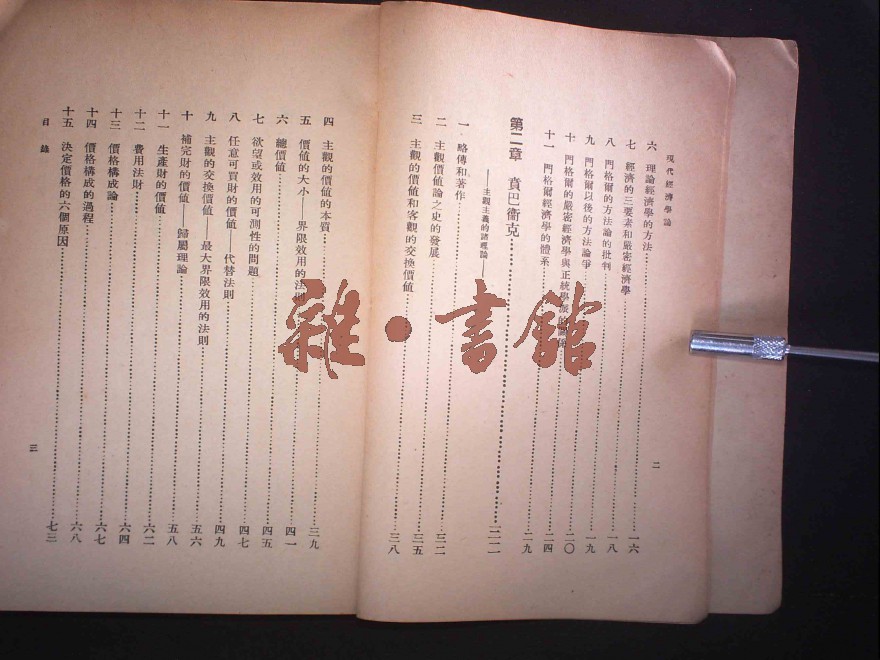 現代經濟學論
六 理論經濟學的方法……一六
七 經濟的三要素和嚴密經濟學……一八
八 門格爾的方法論的批判……一八
九 門格爾以後的方法論爭……一九
十 門格爾的嚴密經濟學與正統學派的……二〇
十一 門格爾經濟學的體系……二四
第二章 賁巴衞克……
——主觀主義的諸理論——
一 略傳和著作……
二 主觀價値論之史的發展……三二
三 主觀的價値和客觀的交換價値……三五
二
四 主觀的價値的本質……三九
五 價値的大小——界限效用的法則……四一
六 總價値……四五
七 欲望或效用的可測性的問題……四七
八 任意可買財的價値——代替法則……四九
九 主觀的交換價値——最大界限效用的法則……五六
十 補完財的價値——歸屬理論……五八
十一 生產財的價値……六二
十二 費用法財……六四
十三 價格構成論……六七
十四 價格構成的過程……六八
十五 決定價格的六個原因……七三
目錄
三
雜·書館